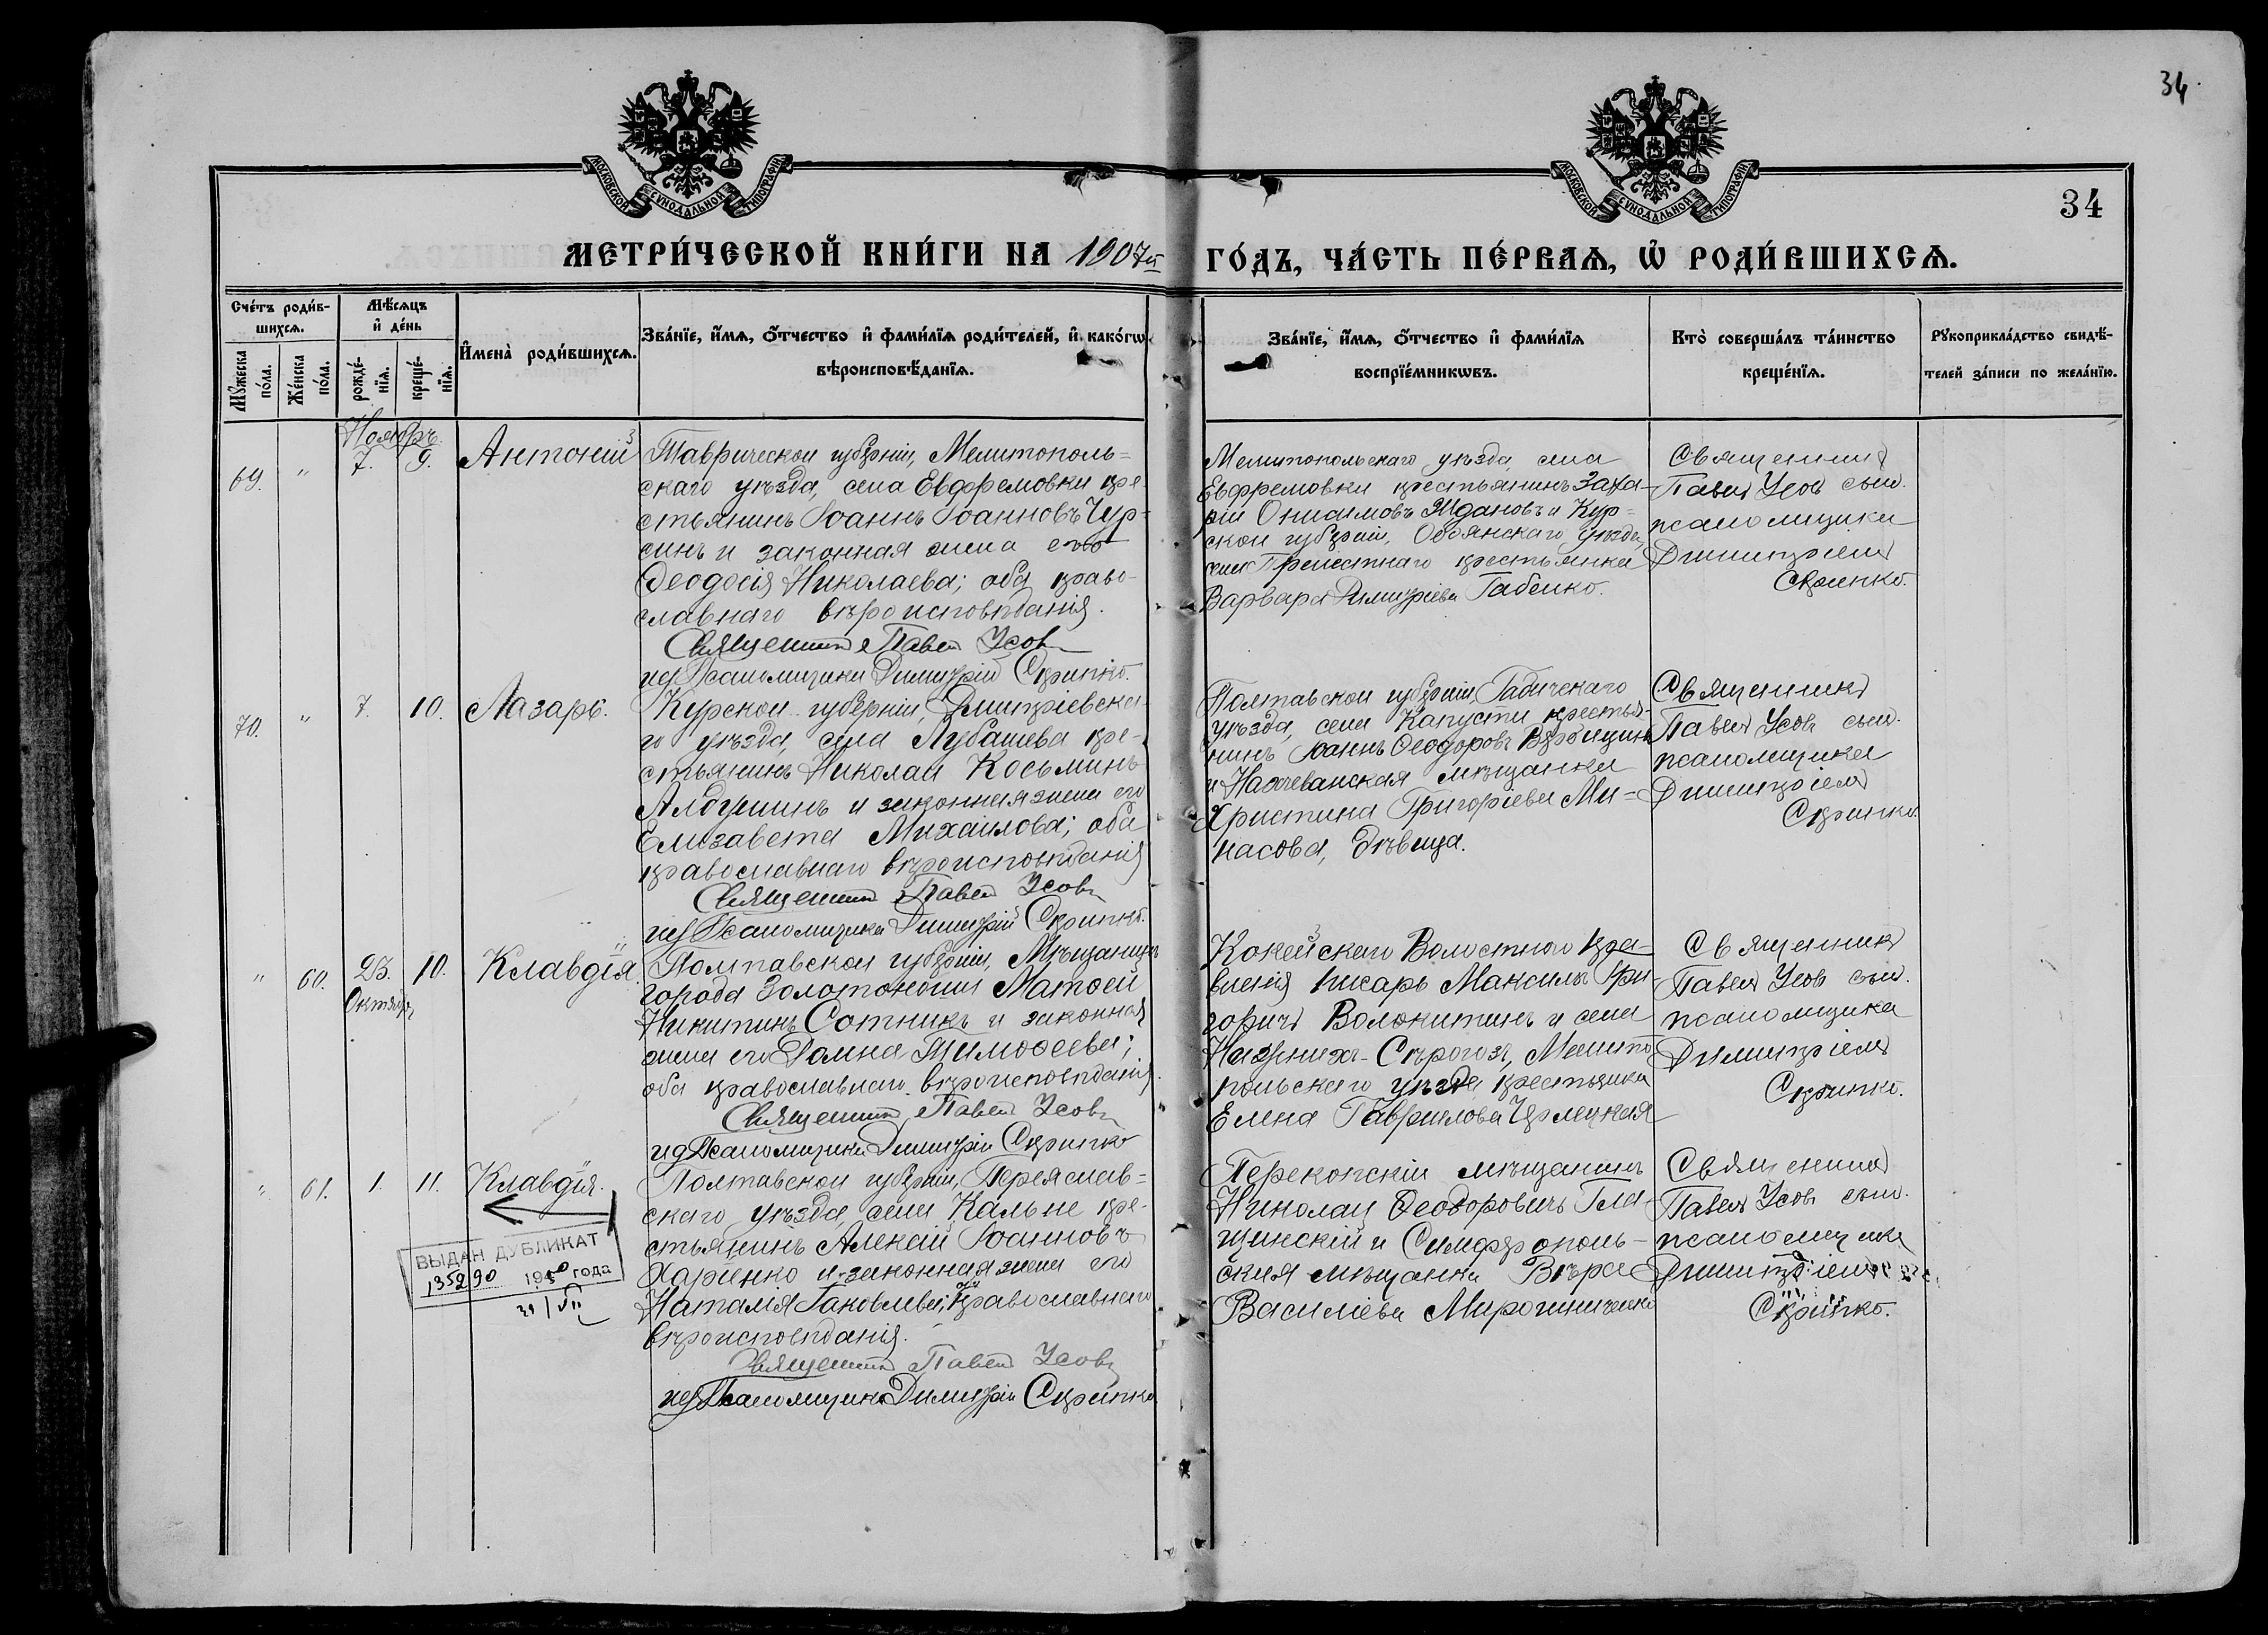 34.
МОСКОВСКОЙ СУНОДАЛЬНОЙ ТИПОГРАФІИ
МОСКОВСКОЙ СУНОДАЛЬНОЙ ТИПОГРАФІИ
34
МЕТРИ́ЧЕСКОЙ КНИ́ГИ НА 1907й ГО́ДЪ, ЧА́СТЬ ПЕ́РВАѦ, Ѡ҆ РОДИ́ВШИХСѦ.
Сче́тъ роди́в-
шихсѧ.
Мѣ́сѧцъ
и҆ де́нь
Мꙋ́жеска
по́ла.
Же́нска
по́ла.
рожде́-
нїѧ.
креще́-
нїѧ.
И҆мена̀ роди́вшихсѧ.
Зва́нїе, и҆́мѧ, ѻ҆́тчество и҆ фами́лїѧ роди́телей, и҆ како́гѡ
вѣроисповѣ́данїѧ.
Зва́нїе, и҆́мѧ, ѻ҆́тчество и҆ фами́лїѧ
воспрїе́мникѡвъ.
Кто̀ соверша́лъ та́инство
креще́нїѧ.
Рꙋкоприкла́дство свидѣ́-
телей за́писи по жела́нїю.
Ноябрь.
69. " 7. 9. Антоній
Таврической губерніи, Мелитополь=
скаго уѣзда, села Евфремовки кре-
стьянинъ Іоаннъ Іоанновъ Чур=
синъ и законная жена его
Ѳеодосія Николаева; оба право-
славнаго вѣроисповѣданія.
Священникъ Павелъ Усовъ
ид Псаломщика Димитрій Скрипко.
Мелитопольскаго уѣзда села
Евфремовки крестьянинъ Заха-
рій Онисимовъ Ждановъ и Кур=
ской губерніи, Обоянскаго уѣзда,
села Прелестнаго крестьянка
Варвара Димитріева Габенко.
Священникъ
Павелъ Усовъ съ и.
псаломщика
Димитріемъ
Скрипко.
70. " 7. 10. Лазарь.
Курской губерніи, Дмитріевска-
го уѣзда, села Лубашева кре-
стьянинъ Николай Косьминъ
Алдушинъ и законная жена его
Елизавета Михаилова; оба
православнаго вѣроисповѣданія
Священникъ Павелъ Усовъ
ид Псаломщика Димитрій Скрипко.
Полтавской губерніи, Гадичскаго
уѣзда, села Капусти крестья-
нинъ Іоаннъ Ѳеодоровъ
и Нахичеванская мѣщанка
Христина Григорьева Ми=
насова, дѣвица.
Священникъ
Павелъ Усовъ съ и.
псаломщика
Димитріемъ
Скрипко.
" 60. 23. 10. Клавдія.
Октября
Полтавской губерніи, Мѣщанинъ
города Золотоноши Матѳей
Никитинъ Сотникъ и законная
жена его Домна Тимоѳеева;
оба православнаго вѣроисповѣданія.
Священникъ Павелъ Усовъ
ид Псаломщика Димитрій Скрипко
Волостного Пра-
вленія писарь Максимъ Гри-
горичъ Волокитинъ и села
Нижнихъ-Сѣрогозъ, Мелито-
польскаго уѣзда крестьянка
Елена Гавриилова
Священникъ
Павелъ Усовъ съ и.
псаломщика
Димитріемъ
Скрипко.
" 61. 1. 11. Клавдія.
ВЫДАН ДУБЛИКАТ
135290 1950 года
31/VII
Полтавской губерніи, Переяслав=
скаго уѣзда, села Кальне кре-
стьянинъ Алексій Іоанновъ
Харіенко и законная жена его
Наталія Іаковлева; православнаго
вѣроисповѣданія.
Священникъ Павелъ Усовъ
ид Псаломщика Димитрій Скрипко
Перекопскій мѣщанинъ
Николай Ѳеодоровичъ Гла-
щинскій и Симферополь-
ская мѣщанка Вѣра
Василіева Мирошниченко
Священникъ
Павелъ Усовъ съ и.
псаломщика
Димитріемъ
Скрипко.